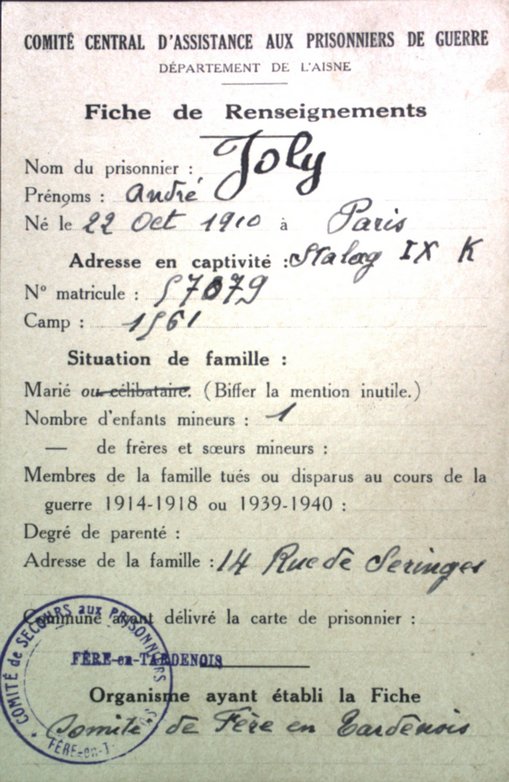 COMITÉ CENTRAL D'ASSISTANCE AUX PRISONNIERS DE GUERRE
DÉPARTEMENT DE L'AISNE
Fiche de Renseignements
Nom du prisonnier : Joly
Prénoms : André
Né le 22 Oct 1910 à Paris
Adresse en captivité : Stalag IX K
N° matricule : 57079
Camp : 1561
Situation de famille :
Marié ou célibataire. (Biffer la mention inutile.)
Nombre d'enfants mineurs : 1
— de frères et sœurs mineurs :
Membres de la famille tués ou disparus au cours de la
guerre 1914-1918 ou 1939-1940 :
Degré de parenté :
Adresse de la famille : 14 Rue de Seringes
Commune ayant délivré la carte de prisonnier :
FÈRE-en-TARDENOIS
COMITÉ de SECOURS aux PRISONNIERS
FÈRE-en-T
Organisme ayant établi la Fiche
Comité de Fère en Tardenois